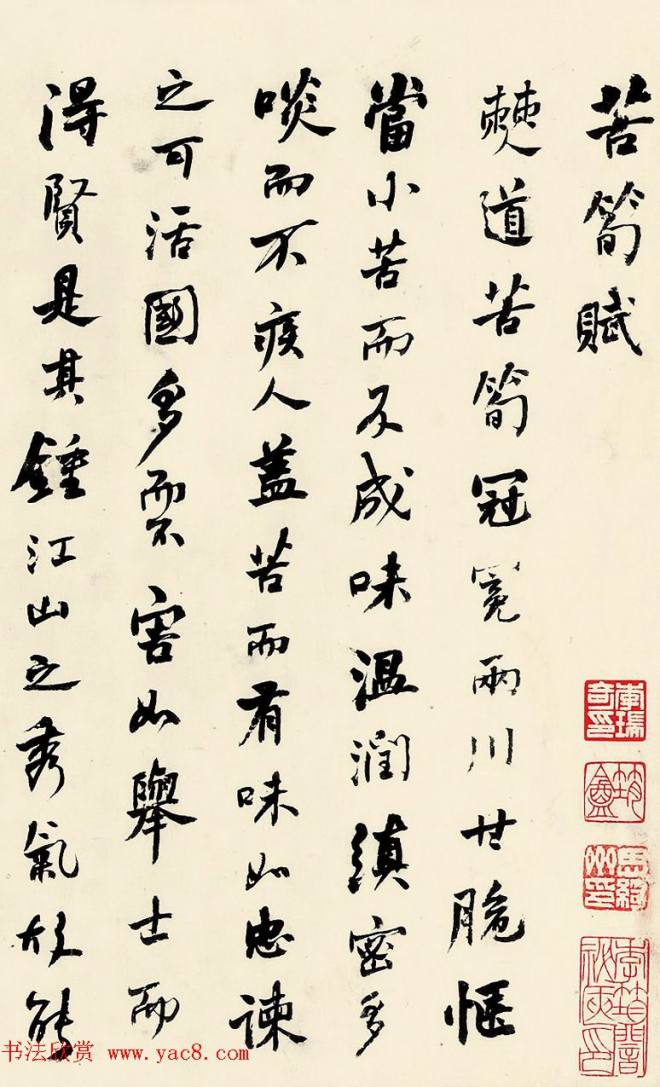 苦筍賦
僰道苦筍冠冕兩川甘脆愜
當小苦而不成味溫潤縝密多
啖而不疾人蓋苦而有味如忠諫
之可活國多而不害如舉士而
得賢是其鍾江山之秀氣故能
书法欣赏 www.yac8.com